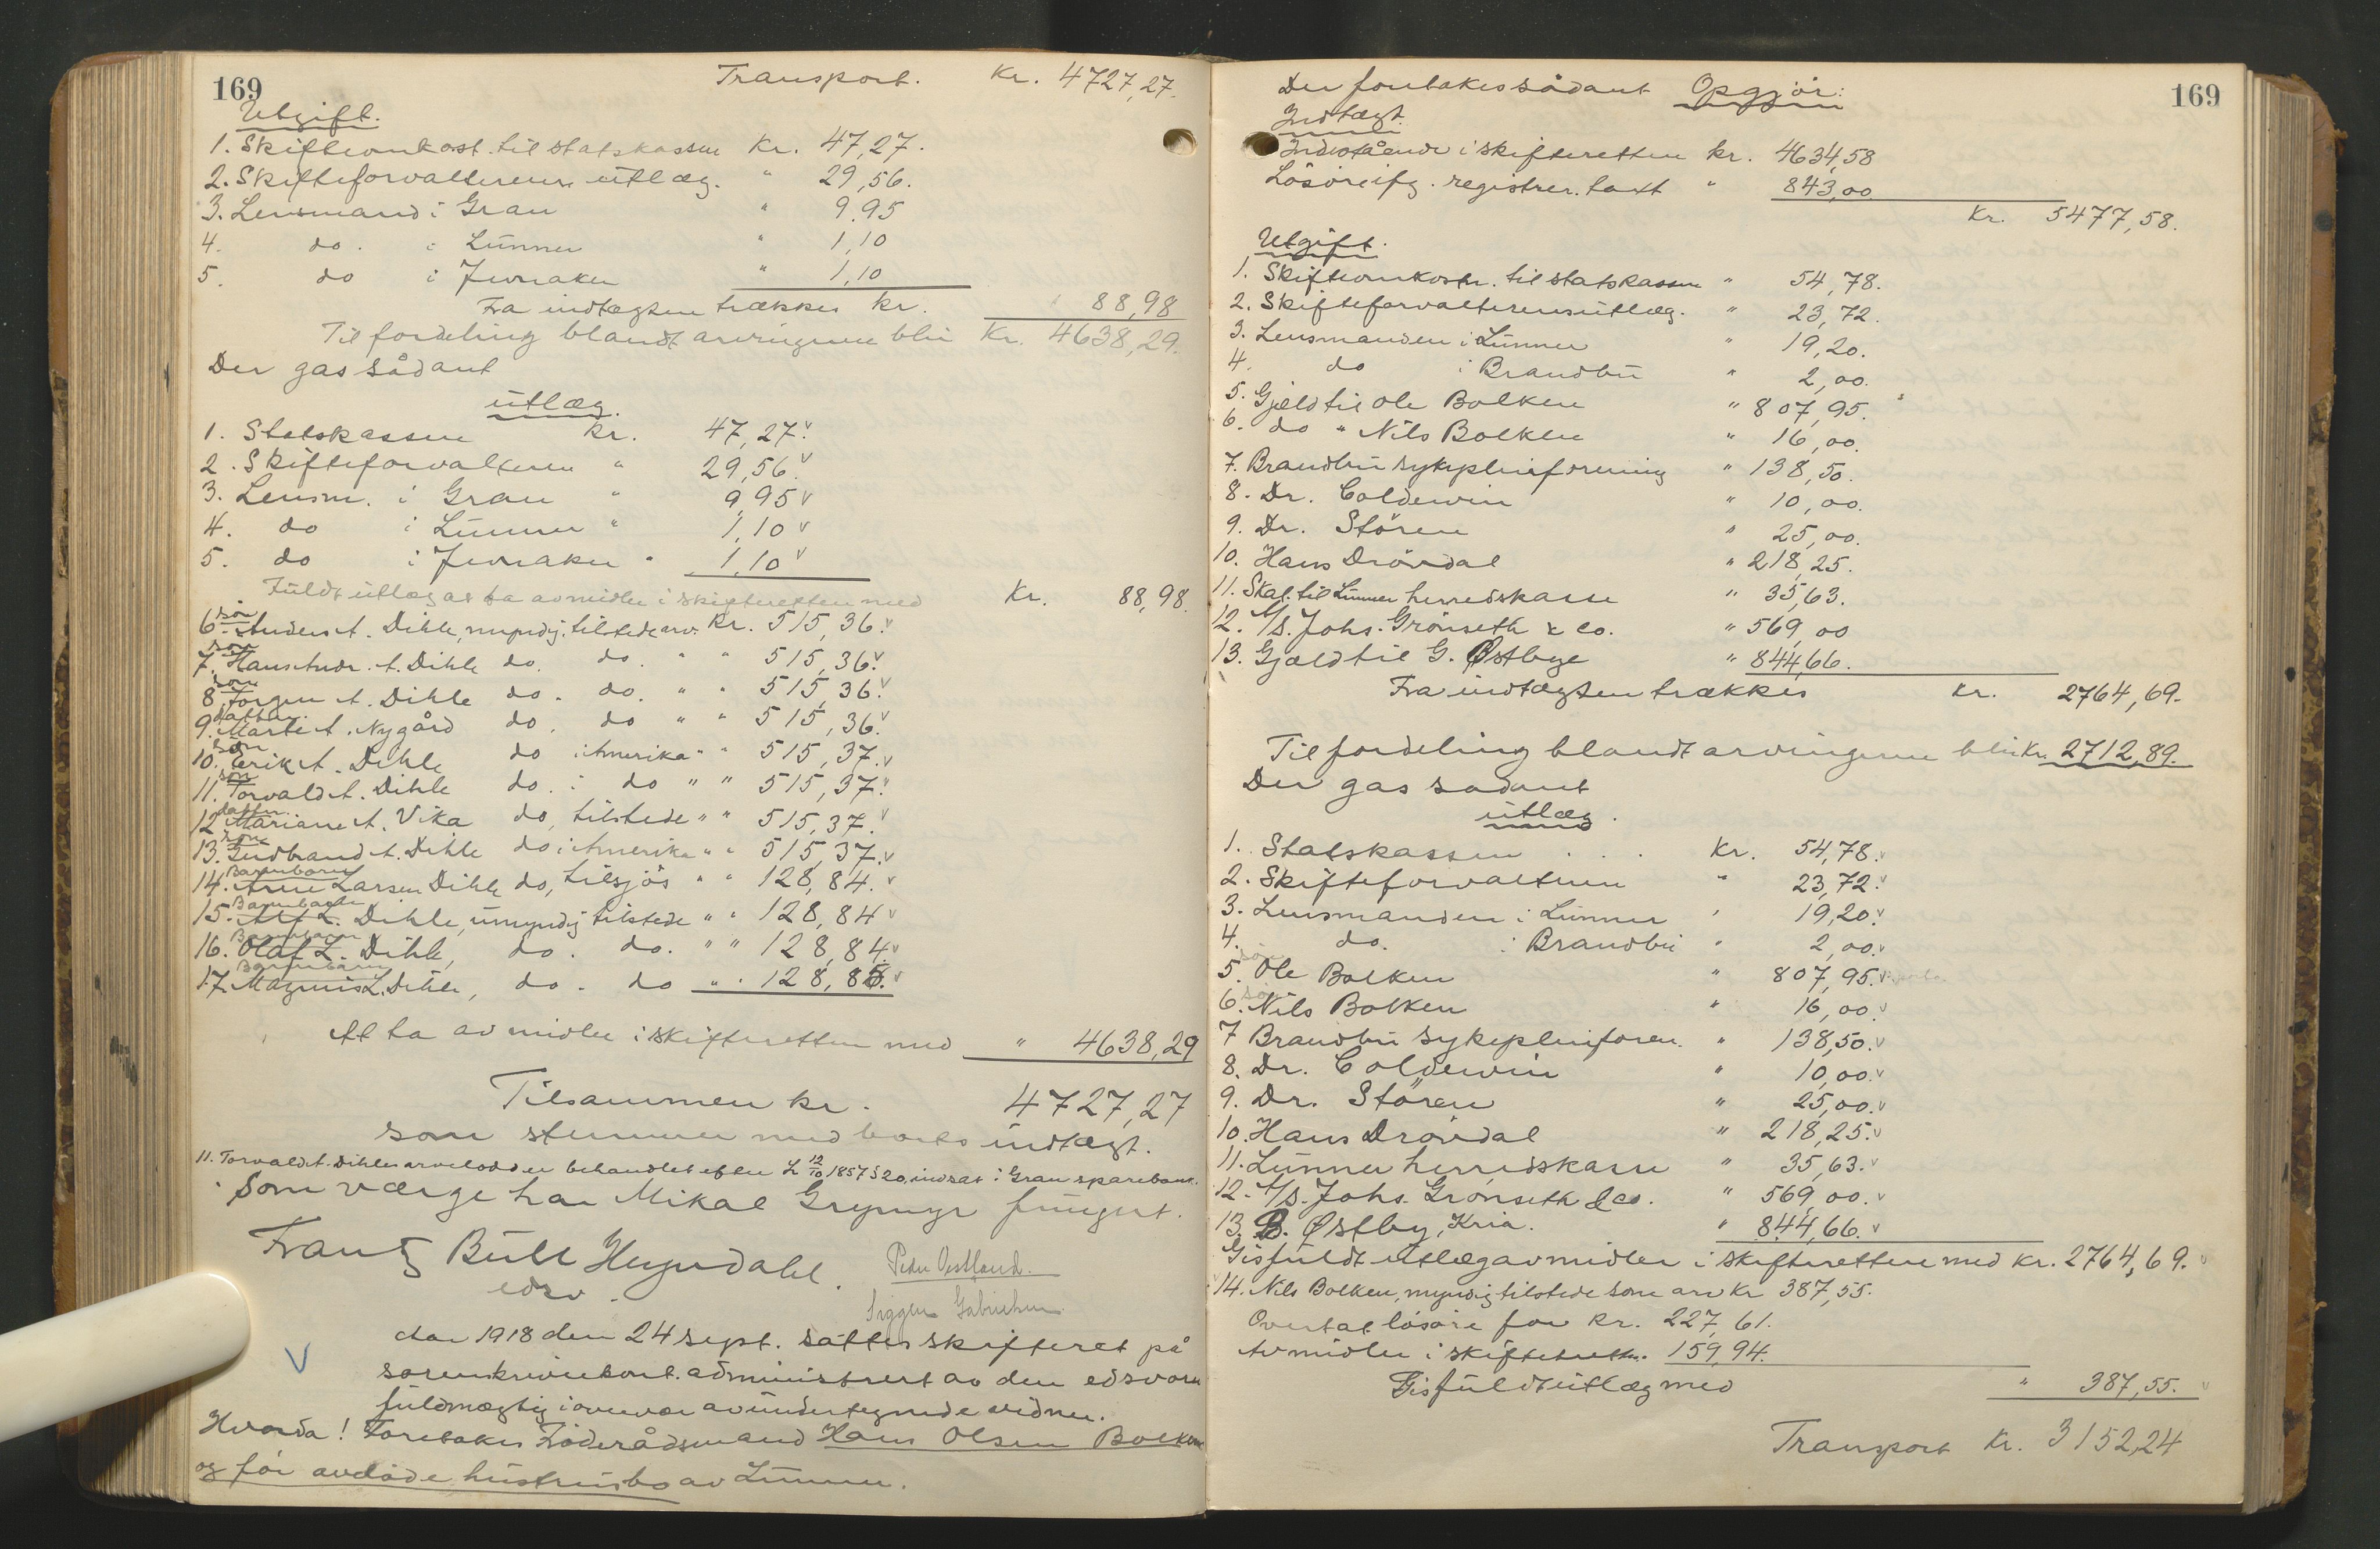 169
Transport. Kr. 4727,27.
Utgift.
1. Skifteomkost. til statskassen Kr. 47,27.
2. Skifteforvalterens utlæg. " 29,56.
3. Lensmand i Gran " 9.95
4. do. i Lunner " 1,10
5. do i Jevnaker " 1,10
Fra indtægten trækkes kr. 88,98
Til fordeling blandt arvingerne blir Kr. 4638,29.
Der gas sådant
utlæg.
1. Statskassen Kr. 47,27.v
2. Skifteforvalteren " 29,56.v
3. Lensm. i Gran " 9,95 v
4. do i Lunner " 1,10 v
5. do i Jevnaker " 1.10 v
Fuldt utlæg at ta av midler i skifteretten med Kr. 88,98.
søn
6. Anders A. Dihle, myndig, tilstede arv. Kr. 515,36.v
søn
7. Hans Andr. A. Dihle do. do. " " 515,36.v
søn
8. Jørgen A. Dihle do. do. " " 515,36.v
datter
9. Marte A. Nygård do. do " " 515,36.v
søn
10. Erik A. Dihle do i Amerika " " 515,37.v
søn
11. Torvald A. Dihle do. i do " " 515,37.v
datter
12. Mariane A. Vika do, tilstede " " 515,37.v
søn
13. Gudbrand A. Dihle do i Amerika " " 515,37.v
Barnebarn
14. Arne Larsen Dihle do, tilsjøs " " 128,84.v
Barnebarn
15. Alf L. Dihle, umyndig tilstede " " 128,84 v
Barnebarn
16. Olaf L. Dihle, do. do. " " 128,84.v
Barnebarn
17. Magnus L. Dihle, do. do " " 128,85.v
At ta av midler i skifteretten med " 4638,29
Tilsammen kr. 4727,27
som stemmer med boets indtægt.
11. Torvald A. Dihles arvelodd er behandlet efter L 12/10 1857 § 20, indsat i Gran sparebank.
Som værge har Mikal Grymyr fungert.
Frantz Bull Heyerdahl.
edsv.
Peder Østland.
1918 den 24 sept. sattes skifteret på
sorenskriverkont. administrert av den edsvorne
fuldmægtig i overvær av undertegnede vidner.
Hvorda! Foretokes Føderådsmand Hans Olsen Bolken
og før avdøde hustrusbo av Lunner.
169
Der foretokes sådant Opgjør:
Indtægt.
Indestående i skifteretten kr. 4634,58
Løsøre ifg. registrer. takst " 843,00
Kr. 5477,58.
Utgift.
1. Skifteomkostn. til statskassen " 54,78.
2. Skifteforvalterens utlæg. " 23,72.
3. Lensmanden i Lunner " 19,20.
4. do i Brandbu " 2,00.
5. Gjæld til Ole Bolken " 807,95.
6. do " Nils Bolken " 16,00.
7. Brandbu sykepleieforening " 138,50.
8. Dr. Coldevin " 10,00.
9. Dr. Støren " 25,00.
10. Hans Drøvdal " 218,25.
11. Skat til Lunner herredskasse " 35,63.
12. A/S. Johs. Grønseth & co. " 569,00
13. Gjæld til G. Østbye " 844,66.
Fra indtægten trækkes kr. 2764,69.
Til fordeling blandt arvingerne blir kr. 2712,89.
Der gas sådant
utlæg.
1. Statskassen . . . Kr. 54,78.v
2. Skifteforvalteren " 23,72.v
3. Lensmanden i Lunner " 19,20.v
4. do. i Brandbu " 2,00.v
søn
5. Ole Bolken " 807,95.v
søn
6. Nils Bolken " 16,00.v
7 Brandbu sykepleieforen. " 138,50.v
8. Dr. Coldevin " 10,00.v
9. Dr. Støren " 25,00.v
10. Hans Drøvdal " 218,25.v
11. Lunner herredskasse " 35,63.v
12. A/S. Johs. Grønseth & co. " 569,00.v
13. G. Østby, Kria. " 844,66.v
Gis fuldt utlæg av midler i skifteretten med kr. 2764,69.v
14. Nils Bolken, myndig tilstede som arv kr 387,55.
Overtat løsøre for kr. 227,61.
Av midler i skifteretten. 159,94.
Gis fuldt utlæg med " 387,55. v
Transport Kr. 3152,24